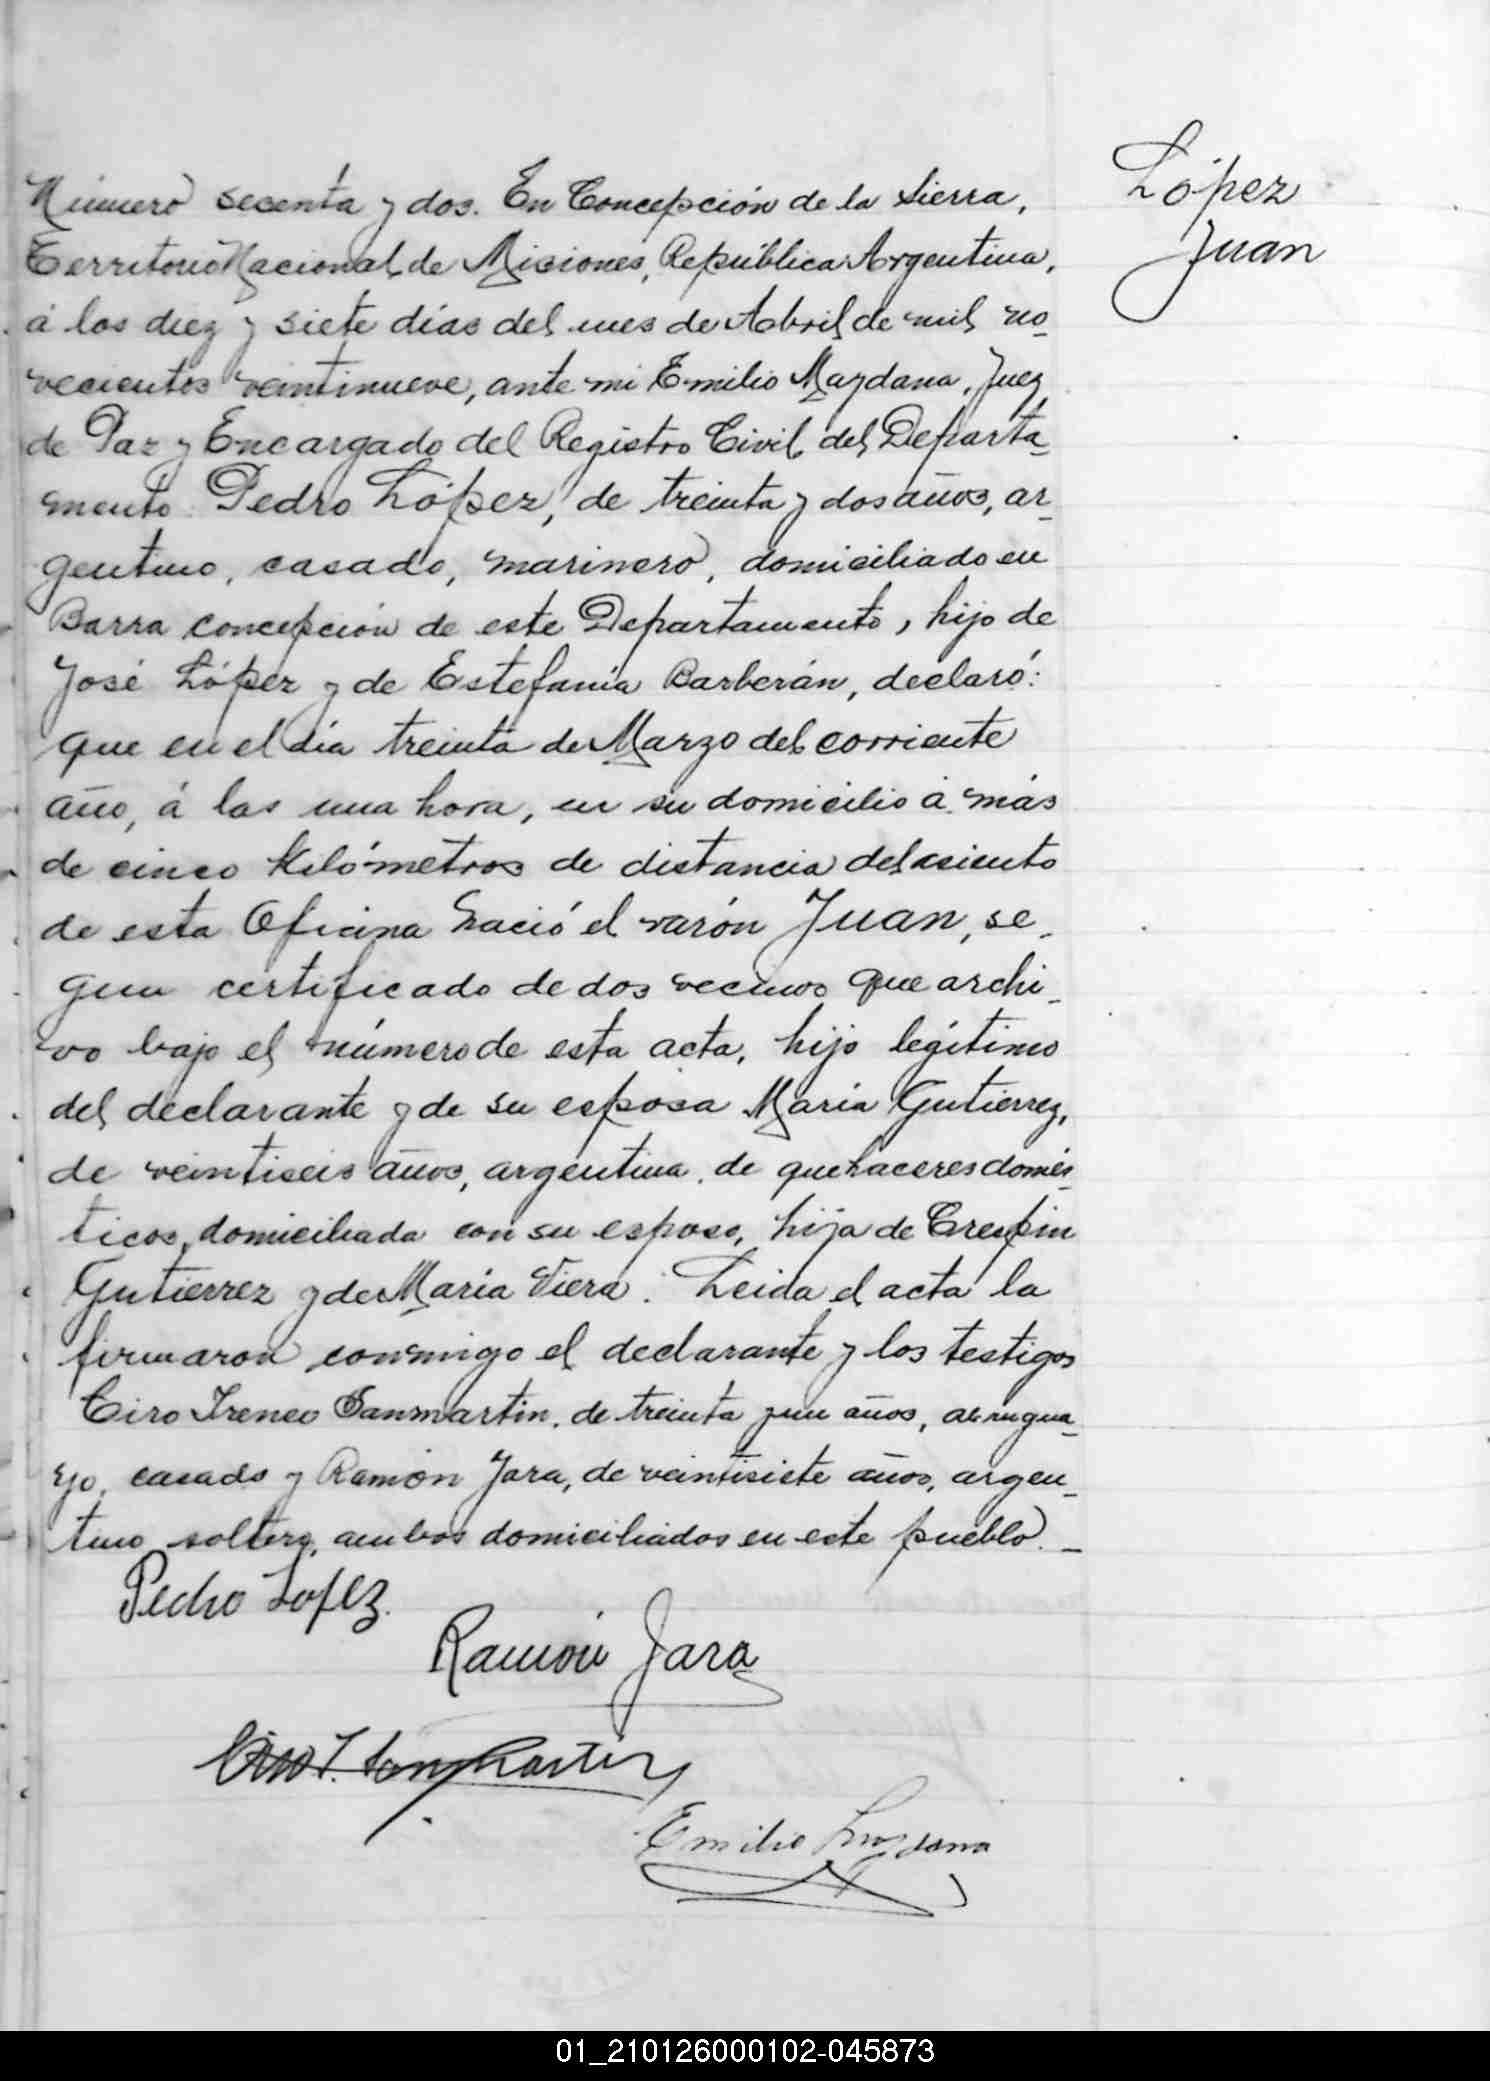 López
Juan
Número secenta y dos. En Concepción de la Sierra,
Territorio Nacional de Misiones, República Argentina,
á los diez y siete días del mes de Abril de mil no-
vecientos veintinueve, ante mi Emilio Magdana, Juez
de Paz y Encargado del Registro Civil del Departa-
mento Pedro López, de treinta y dos años, ar-
gentino, casado, marinero, domiciliado en
Barra concepción de este Departamento, hijo de
José López y de Estefanía Barberán, declaró:
que en el día treinta de Marzo del corriente
año, á las una hora, en su domicilio á más
de cinco kilómetros de distancia del asiento
de esta Oficina nació el varón Juan, se-
gun certificado de dos vecinos que archi-
vo bajo el número de esta acta, hijo legítimo
del declarante y de su esposa María Gutierrez,
de veintiseis años, argentina, de quehaceres domés-
ticos, domiciliada con su esposo, hija de Crespin
Gutierrez y de María Viera. Leida el acta la
firmaron conmigo el declarante y los testigos
Ciro Ireneo Sanmartin, de treinta y un años, urugua-
yo, casado y Ramón Jara, de veintisiete años, argen-
tino, soltero, ambos domiciliados en este pueblo. -
Pedro Lopez.
Ramón Jara
Ciro I. Sanmartin
Emilio Magdana
01_210126000102-045873